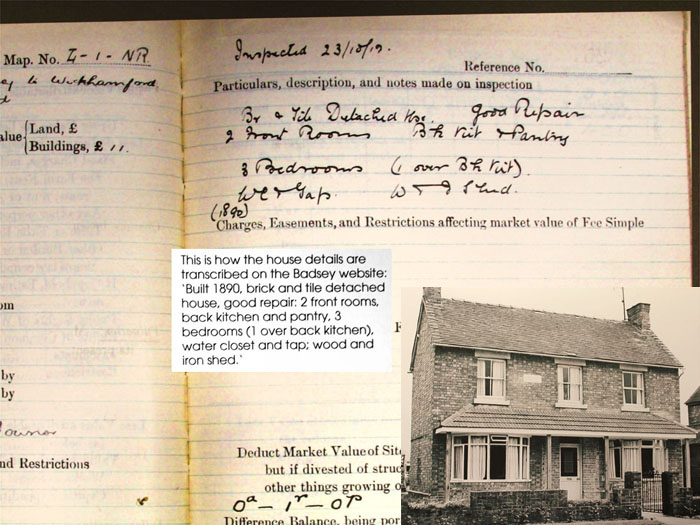 Map. No. I-1-NR
to Wickhamford
alue Land, £
Buildings, £ 11.
om
by
by
owner
nd Restrictions
Inspected 23/10/12.
Reference No.
Particulars, description, and notes made on inspection
Br & Tile Detached Hse. Good Repair
2 Front Rooms Bk Kit & Pantry
3 Bedrooms (1 over Bk Kit).
WC & Tap. W & I Shed.
(1890)
Charges, Easements, and Restrictions affecting market value of Fee Simple
This is how the house details are
transcribed on the Badsey website:
'Built 1890, brick and tile detached
house, good repair: 2 front rooms,
back kitchen and pantry, 3
bedrooms (1 over back kitchen),
water closet and tap; wood and
iron shed.'
F
Deduct Market Value of Site
but if divested of struc
other things growing o
0a – 1r – 0p
Difference Balance, being por